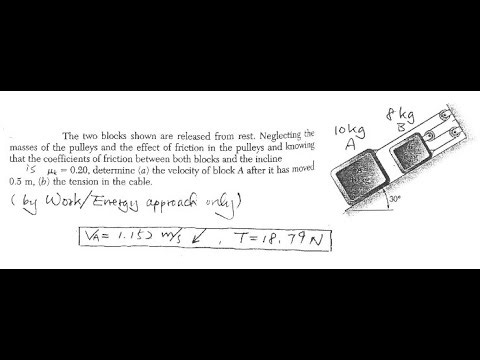 The two blocks shown are released from rest. Neglecting the
masses of the pulleys and the effect of friction in the pulleys and knowing
that the coefficients of friction between both blocks and the incline
is μk = 0.20, determine (a) the velocity of block A after it has moved
0.5 m, (b) the tension in the cable.
(by Work/Energy approach only)
VA = 1.152 m/s ↙ , T = 18.79 N
10kg
A
8kg
B
30°